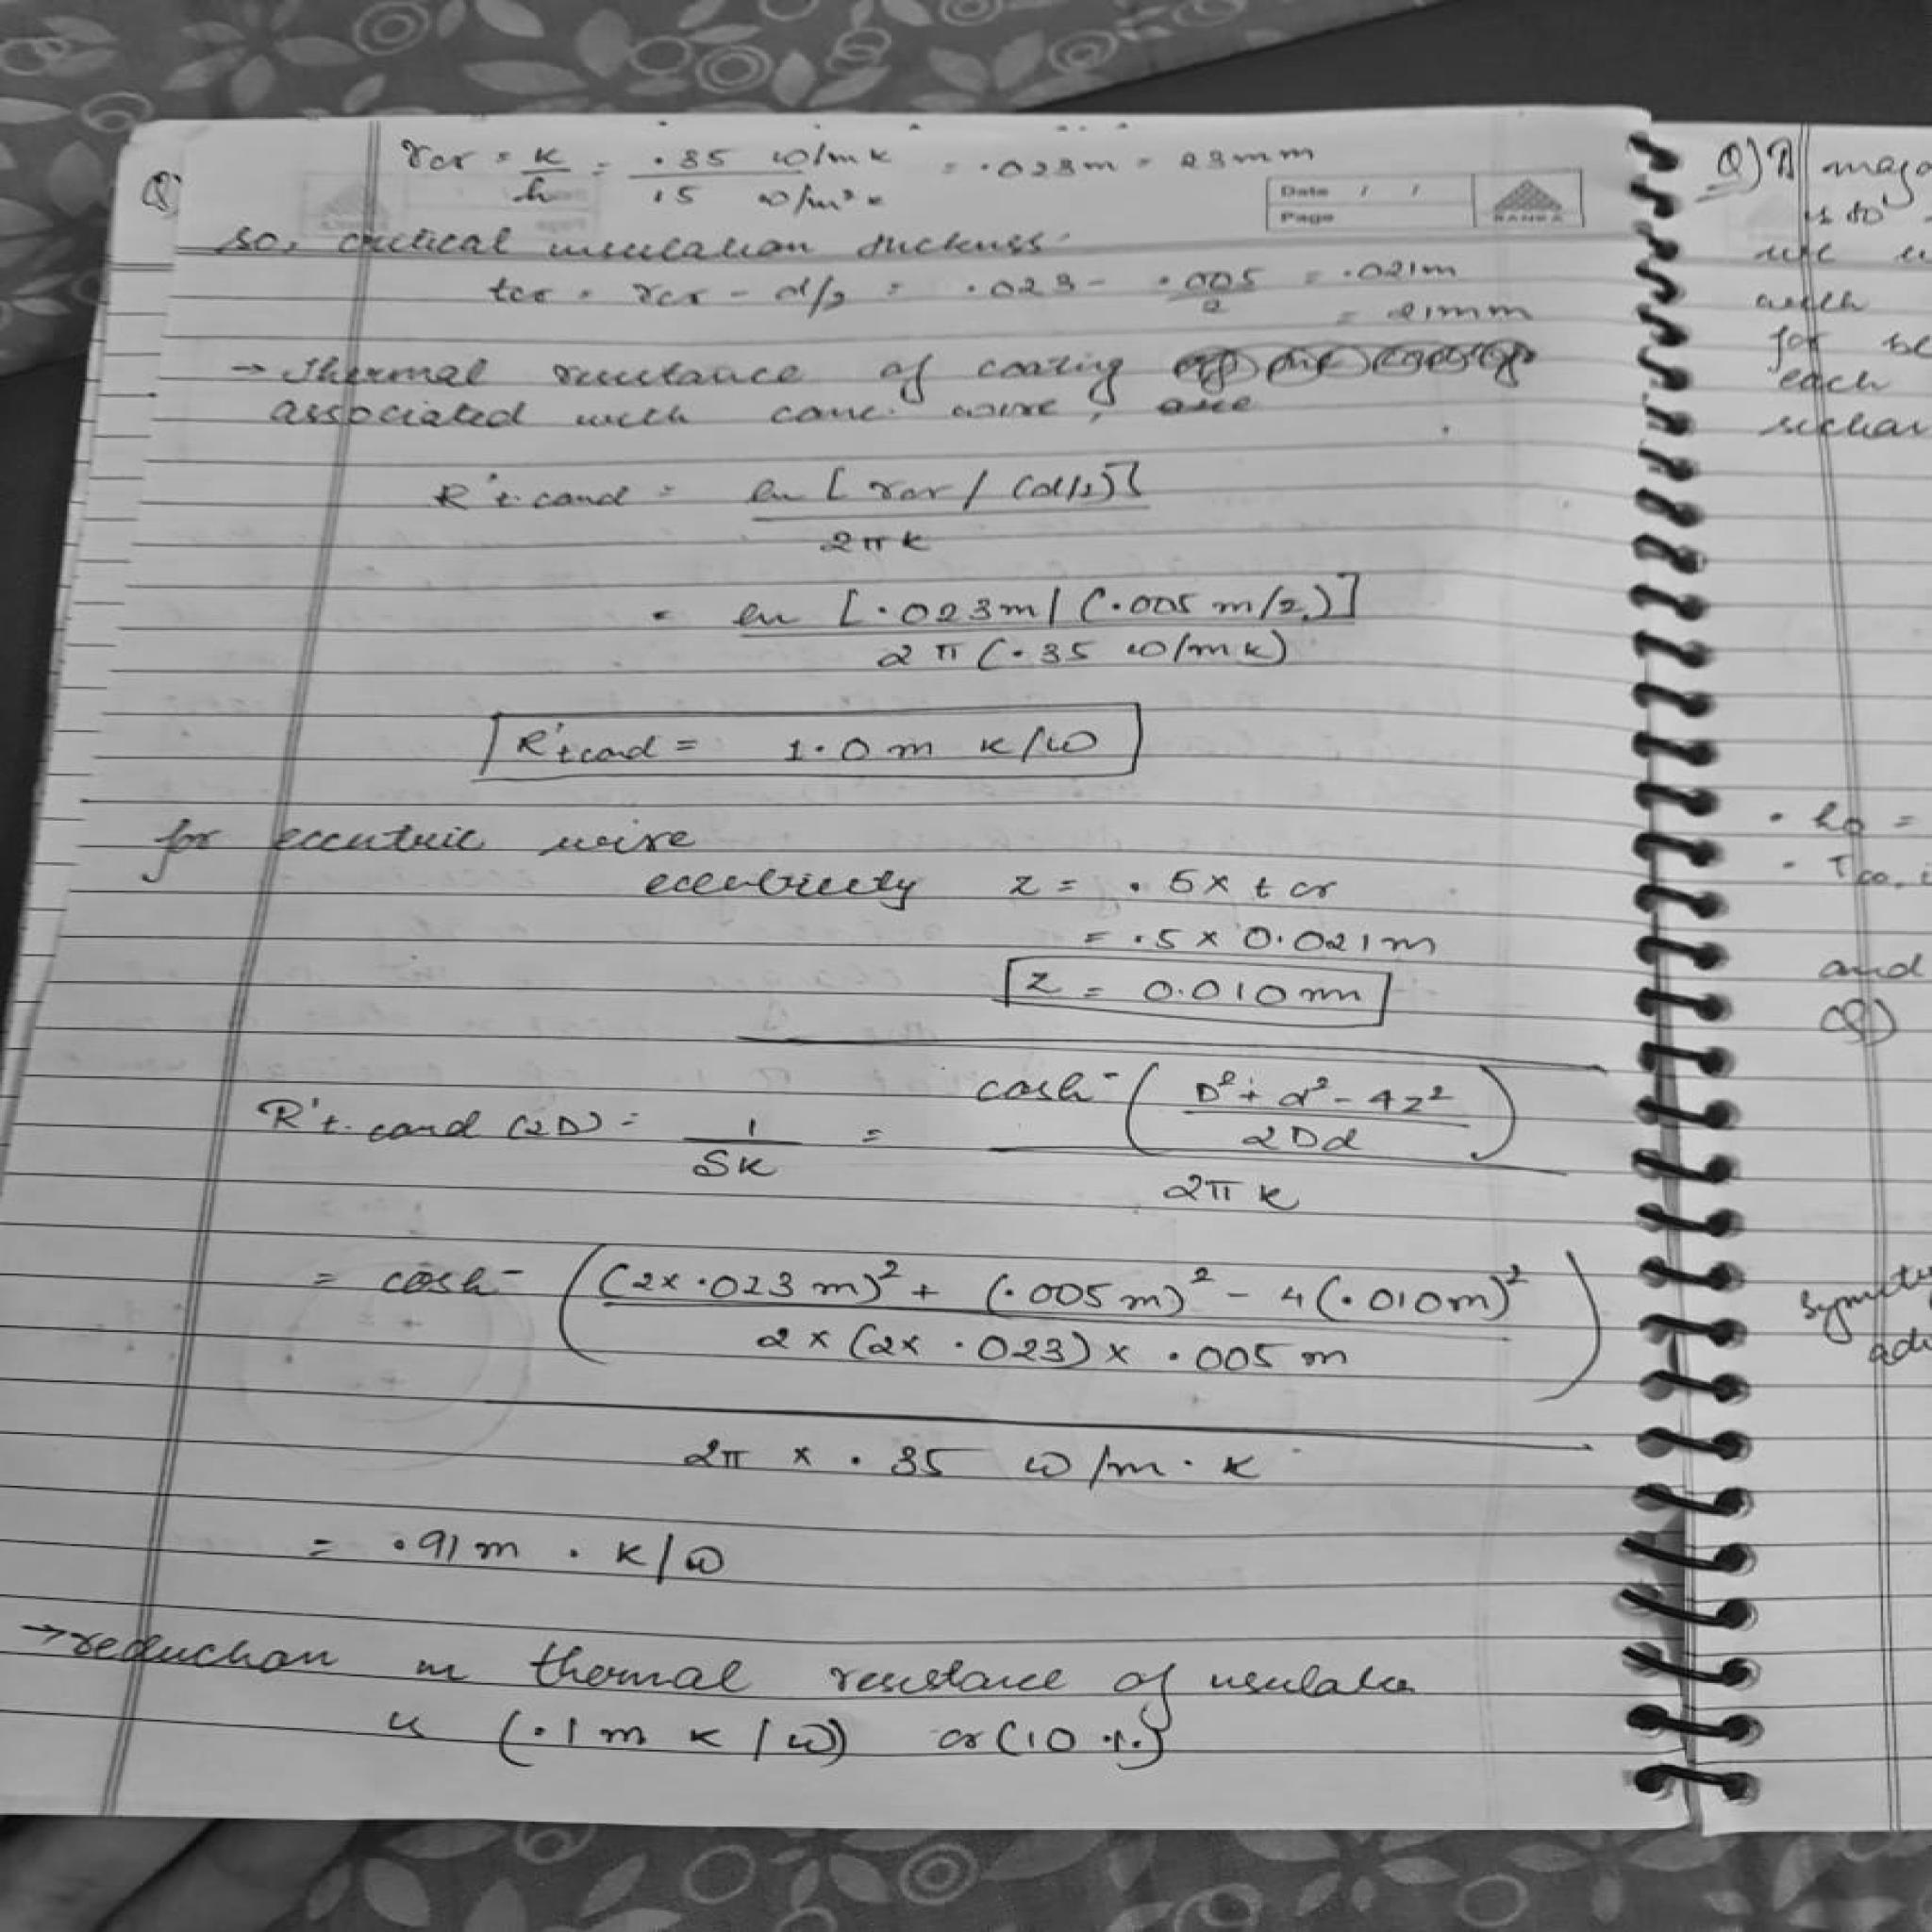 rcr = k/h = .35 w/mk / 15 w/m² k = .023m = 23mm
Q)
Date / /
Page
RANKA
so, critical insulation thickness
tcr = rcr - d/2 = .023 - .005/2 = .021m
= 21mm
→ Thermal resistance of coating
associated with conc. wire, are
R't. cond = ln [rcr / (d/2)] / 2πk
= ln [.023m / (.005 m/2)] / 2π (.35 w/mk)
R't cond = 1.0 m k/w
for eccentric wire
eccentricity z = .5 x t cr
= .5 x 0.021m
z = 0.010 m
R't. cond (2D) = 1/Sk = cosh⁻ (D² + d² - 4z² / 2Dd) / 2πk
= cosh⁻ ((2x .023 m)² + (.005 m)² - 4(.010m)² / 2 x (2x .023) x .005 m)
2π x .35 w/m.k
= .91 m . k/w
→ reduction in thermal resistance of
(.1 m k/w) or (10 %)
Q) A
is to
with
for
each
and